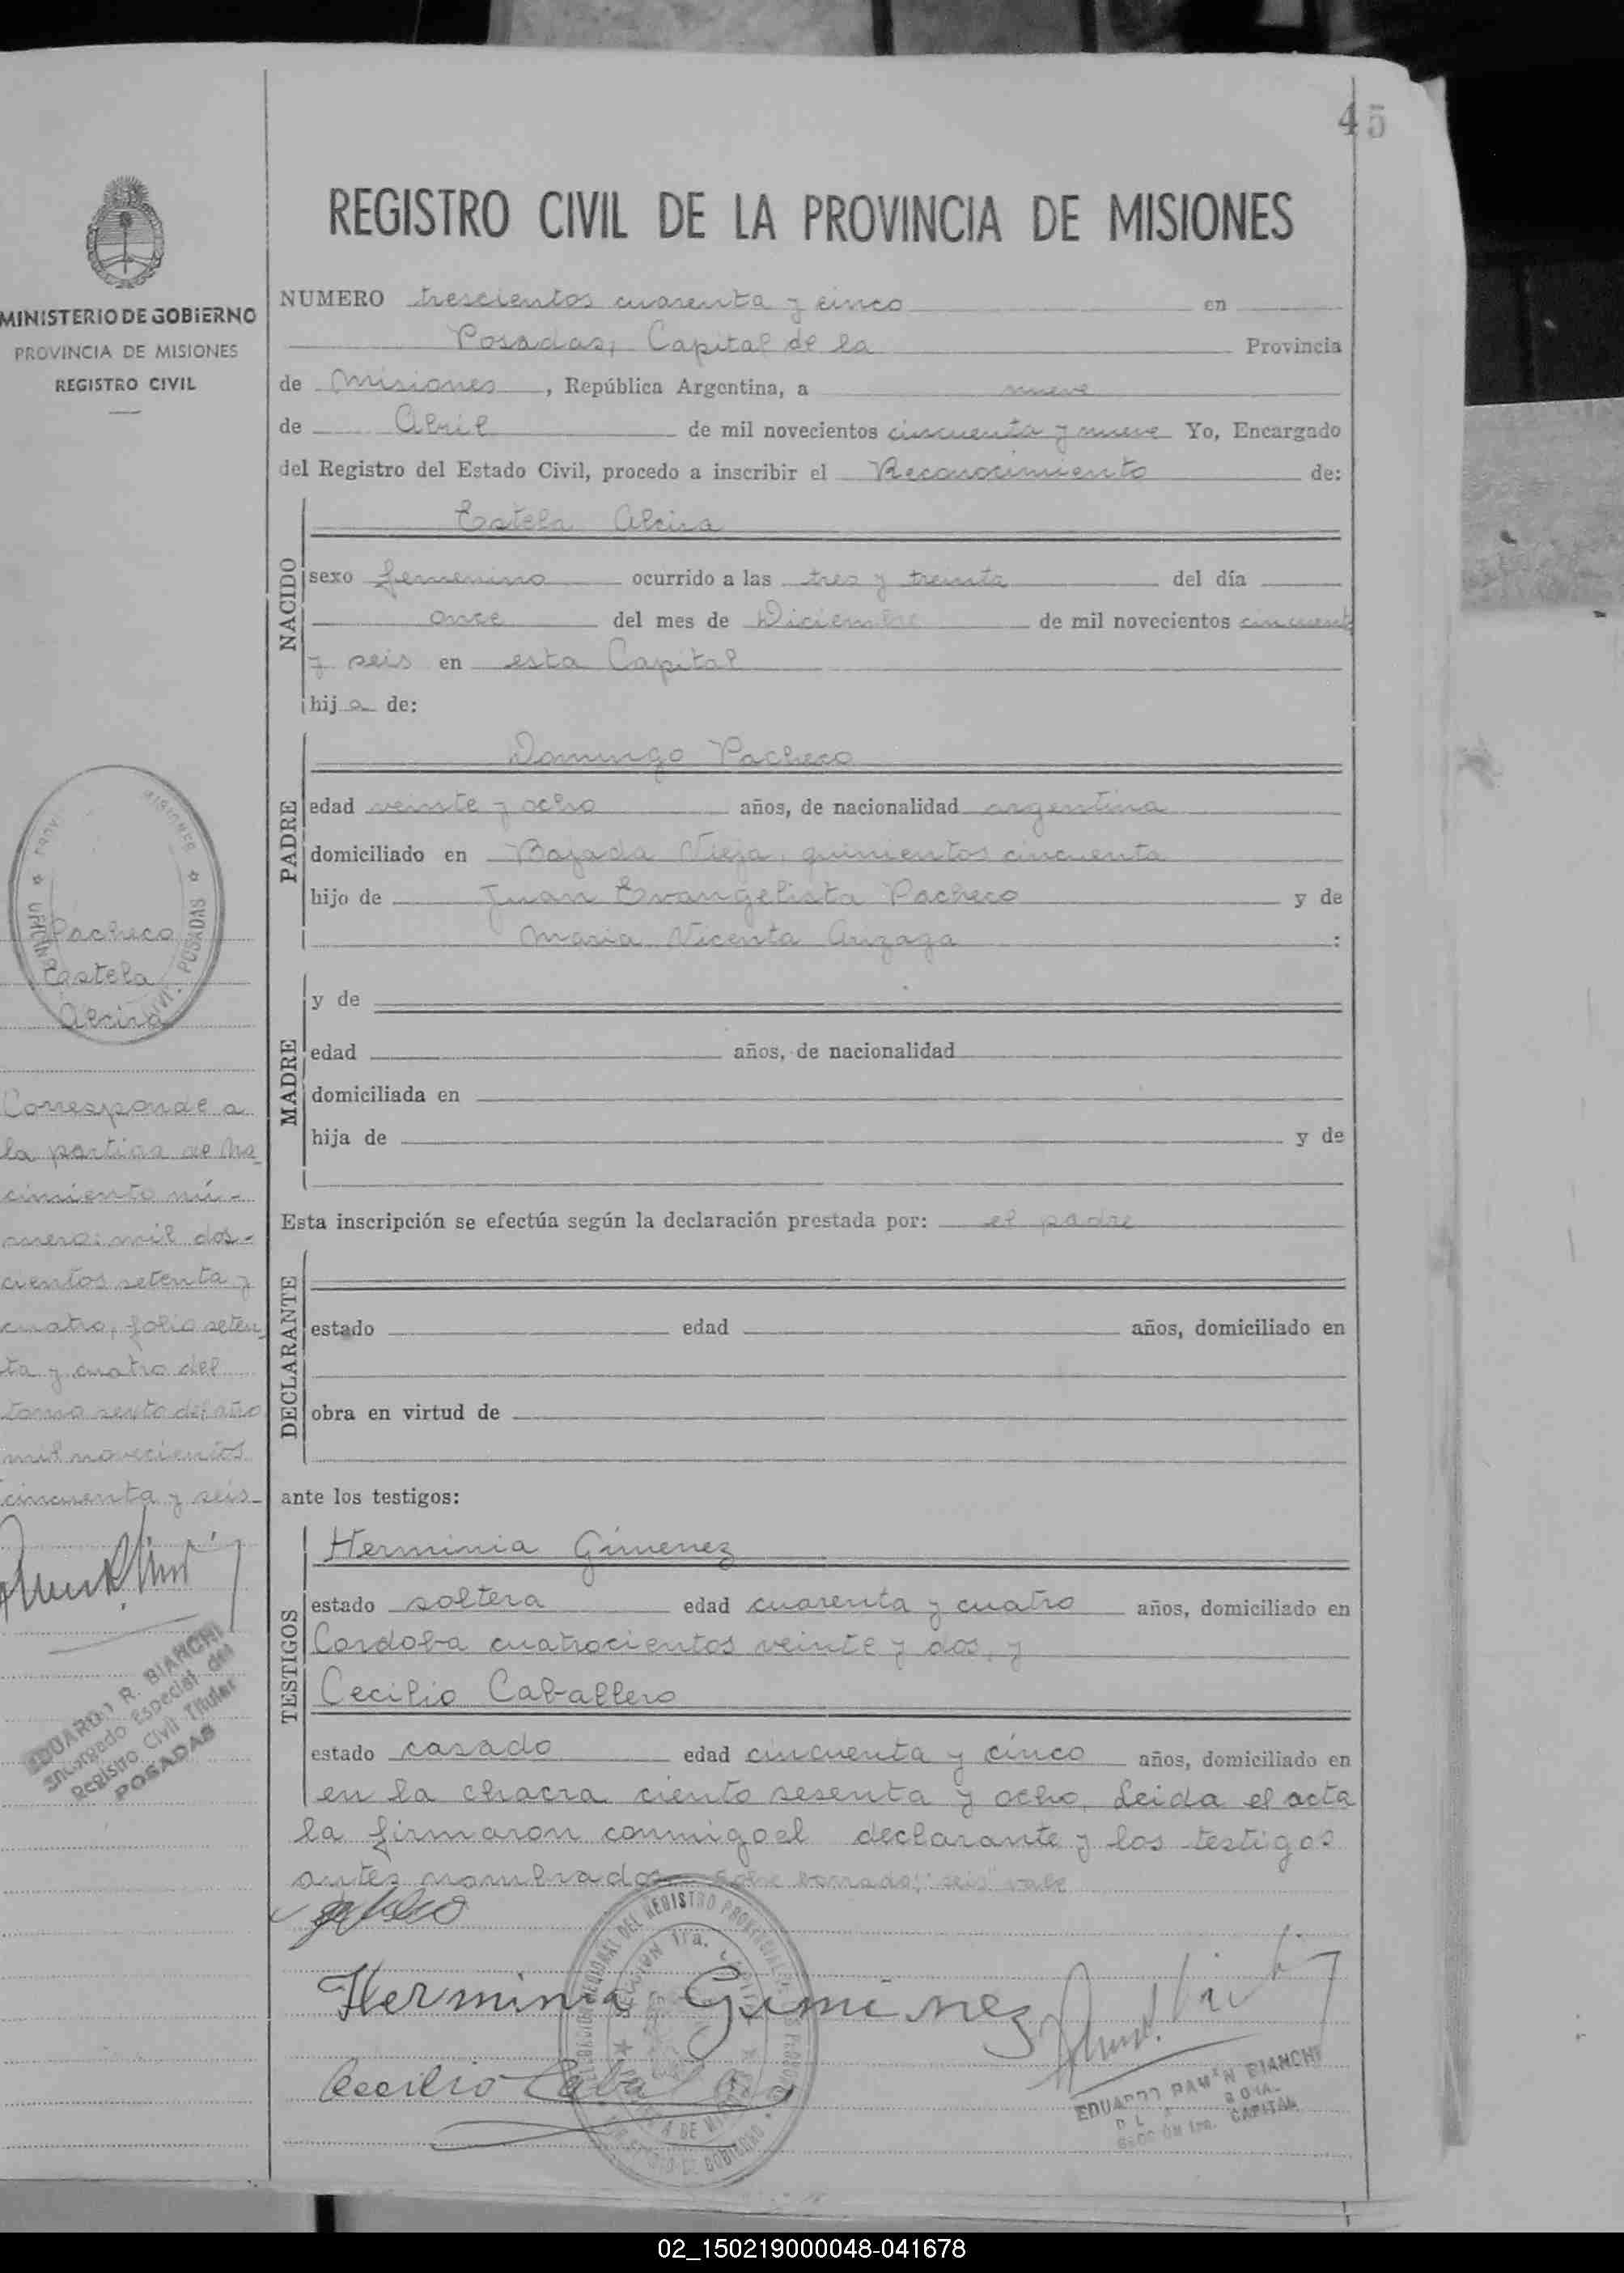 45
REGISTRO CIVIL DE LA PROVINCIA DE MISIONES
MINISTERIO DE GOBIERNO
PROVINCIA DE MISIONES
REGISTRO CIVIL
NUMERO trescientos cuarenta y cinco en
Posadas, Capital de la Provincia
de Misiones, República Argentina, a nueve
de Abril de mil novecientos cincuenta y nueve Yo, Encargado
del Registro del Estado Civil, procedo a inscribir el Reconocimiento de:
NACIDO
Estela Alcira
sexo femenino ocurrido a las tres y treinta del día
once del mes de Diciembre de mil novecientos cincuenta
y seis en esta Capital
hija de:
PADRE
Domingo Pacheco
edad veinte y ocho años, de nacionalidad argentina
domiciliado en Bajada Vieja, quinientos cincuenta
hijo de Juan Evangelista Pacheco y de
Maria Vicenta Arizaga :
MADRE
y de
edad años, de nacionalidad
domiciliada en
hija de y de
Esta inscripción se efectúa según la declaración prestada por: el padre
DECLARANTE
estado edad años, domiciliado en
obra en virtud de
ante los testigos:
TESTIGOS
Herminia Gimenez
estado soltera edad cuarenta y cuatro años, domiciliado en
Cordoba cuatrocientos veinte y dos, y
Cecilio Caballero
estado casado edad cincuenta y cinco años, domiciliado en
en la chacra ciento sesenta y ocho. Leida el acta
la firmaron conmigo el declarante y los testigos
antes nombrados Sobre borrado: "seis" vale
Herminia Gimenez
Cecilio
EDUARDO RAMON BIANCHI
SECCION 1ra. CAPITAL
Pacheco
Estela
Alcira
POSADAS
Corresponde a
la partida de Na-
cimiento nú-
mero: mil dos-
cientos setenta y
cuatro, folio seten
ta y cuatro del
tomo sexto del año
mil novecientos
cincuenta y seis-
EDUARDO R. BIANCHI
Encargado Especial del
Registro Civil Titular
POSADAS
02_150219000048-041678